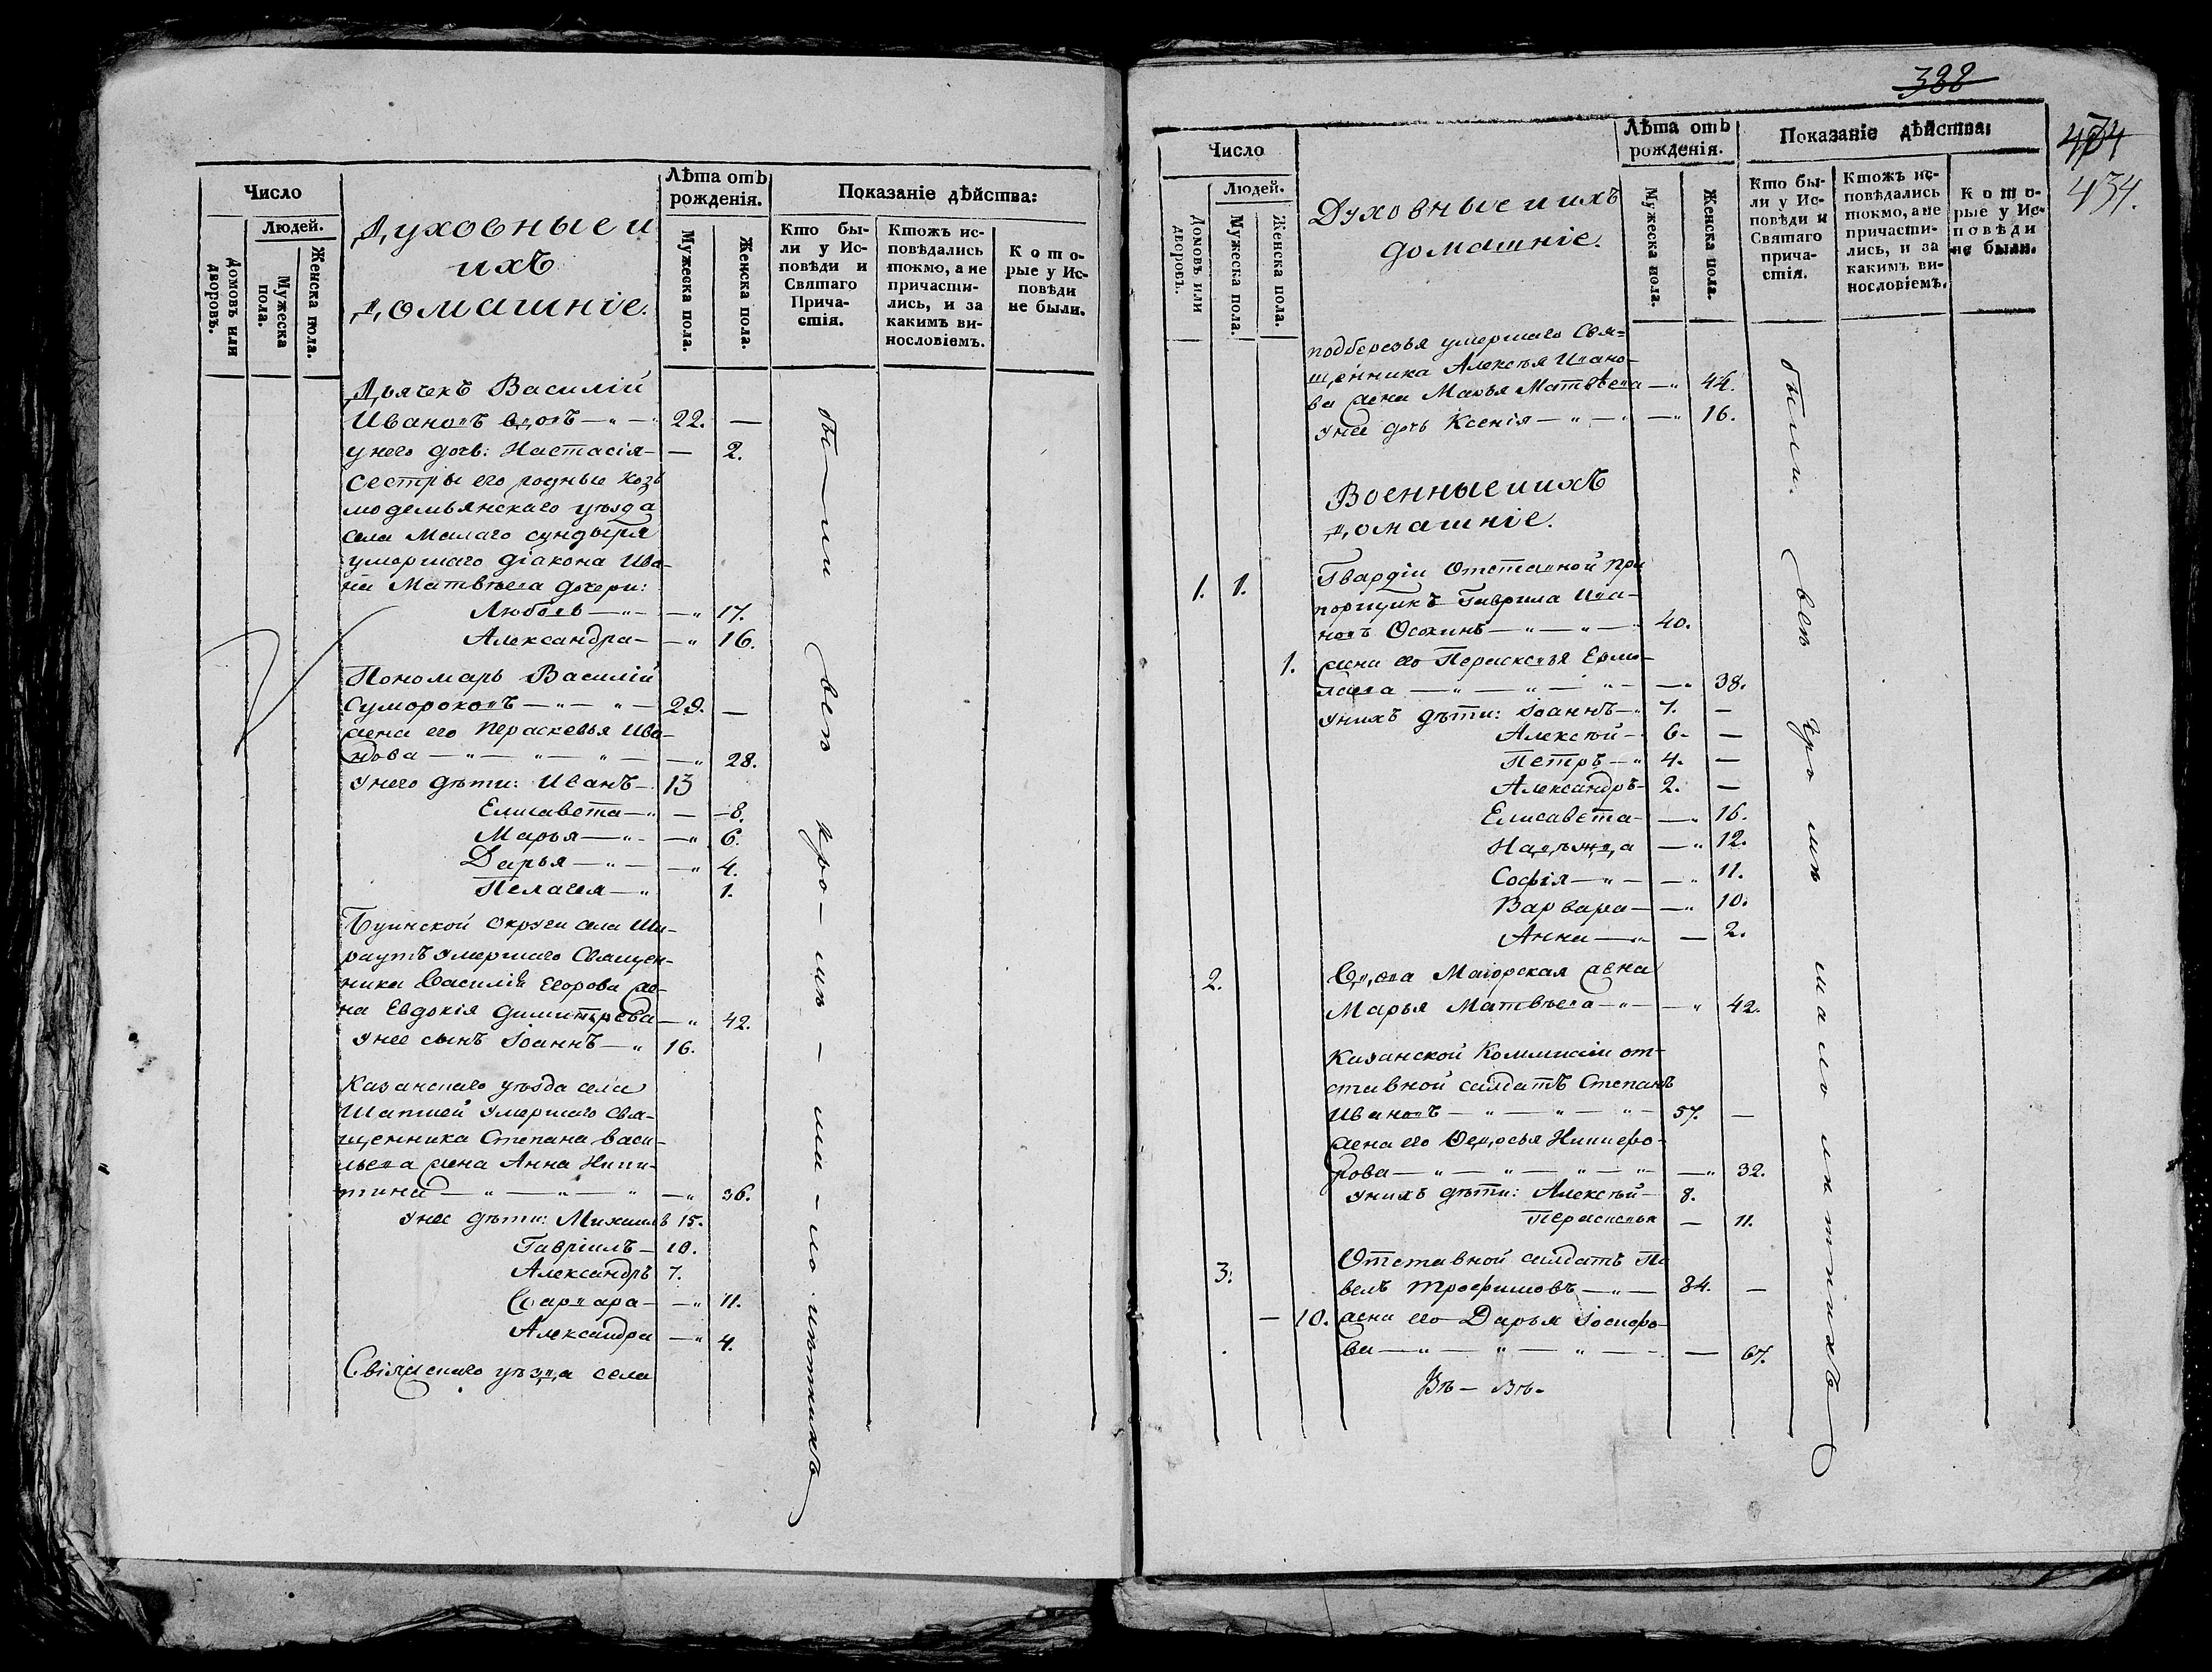 Число
Людей.
Домовъ или дворовъ.
Мужеска пола.
Женска пола.
Духовные и
ихъ
домашніе.
Лѣта отъ
рожденія.
Мужеска пола.
Женска пола.
Показаніе дѣйства:
Кто бы-
ли у Ис-
повѣди и
Святаго
Прича-
стія.
Ктожъ ис-
повѣдались
токмо, а не
причасти-
лись, и за
какимъ ви-
нословіемъ.
Кото-
рые у Ис-
повѣди
не были.
Дьячекъ Василій
Ивановъ вдовъ — „ — 22. —
у него дочь: Настасія — — 2.
Сестры его родные Козь
модемьянскаго уѣзда
села Малаго сундыря
умершаго діакона Ива-
на Матвѣева дочери:
Любовь — „ — — „ 17.
Александра — — „ 16.
Пономарь Василій
Сумороковъ — „ — „ — 29. —
жена его Пераскевья Ива-
нова — „ — „ — „ — — „ 28.
У него дѣти: Иванъ — 13
Елисавета — „ — — 8.
Марья — „ — — „ 6.
Дарья — „ — — „ 4.
Пелагея — „ 1.
Буинской округи села Ши-
раутъ умершаго Священ-
ника Василія Егорова же-
на Евдокія Димитрева — „ 42.
У нее сынъ Іоаннъ — „ 16.
Казанскаго уѣзда села
Шапшей умершаго Свя-
щенника Степана Васи-
льева жена Анна Ники-
тина — „ — „ — „ — „ 36.
У нее дѣти: Михаилъ 15.
Гавріилъ — 10.
Александръ 7.
Варвара — — „ 11.
Александра — „ 4.
Свіяжскаго уѣзда села
бы — ли всѣ кро — мѣ — ма — ло — лѣтнихъ
388
474
434.
Число
Людей.
Домовъ или дворовъ.
Мужеска пола.
Женска пола.
Духовные и ихъ
домашніе.
Лѣта отъ
рожденія.
Мужеска пола.
Женска пола.
Показаніе дѣйства:
Кто бы-
ли у Ис-
повѣди и
Святаго
прича-
стія.
Ктожъ ис-
повѣдались
токмо, а не
причасти-
лись, и за
какимъ ви-
нословіемъ.
Кото-
рые у Ис-
повѣди
не были.
подберезья умершаго Свя-
щенника Алексѣя Ивано-
ва жена Марья Матвѣева — „ 44.
У нее дочь Ксенія — „ — „ — „ 16.
Военные и ихъ
домашніе.
1. 1. Гвардіи Отставной пра
порщикъ Гаврила Ива-
новъ Осокинъ — „ — „ — 40.
1. жена его Пераскевья Ермо-
лаева — „ — „ — „ — — „ 38.
У нихъ дѣти: Іоаннъ — „ 7. —
Алексѣй — 6. —
Петръ — „ 4. —
Александръ — 2. —
Елисавета — — „ 16.
Надѣжда — „ 12.
Софія — „ — — „ 11.
Варвара — — „ 10.
Анна — „ — 2.
2. Вдова Маіорская жена
Марья Матвѣева — „ — — „ 42.
Казанской Коммисіи от-
ставной салдатъ Степанъ
Ивановъ — „ — „ — „ — 57. —
жена его Федосья Никифо-
рова — „ — „ — „ — „ — „ 32.
У нихъ дѣти: Алексѣй — 8.
Пераскевья — 11.
3. Отставной салдатъ Па
велъ Трофимовъ — „ — 84. —
— 10. жена его Дарья Іосифо-
ва — „ — „ — „ — — 67.
были. всѣ кро мѣ мало лѣтнихъ